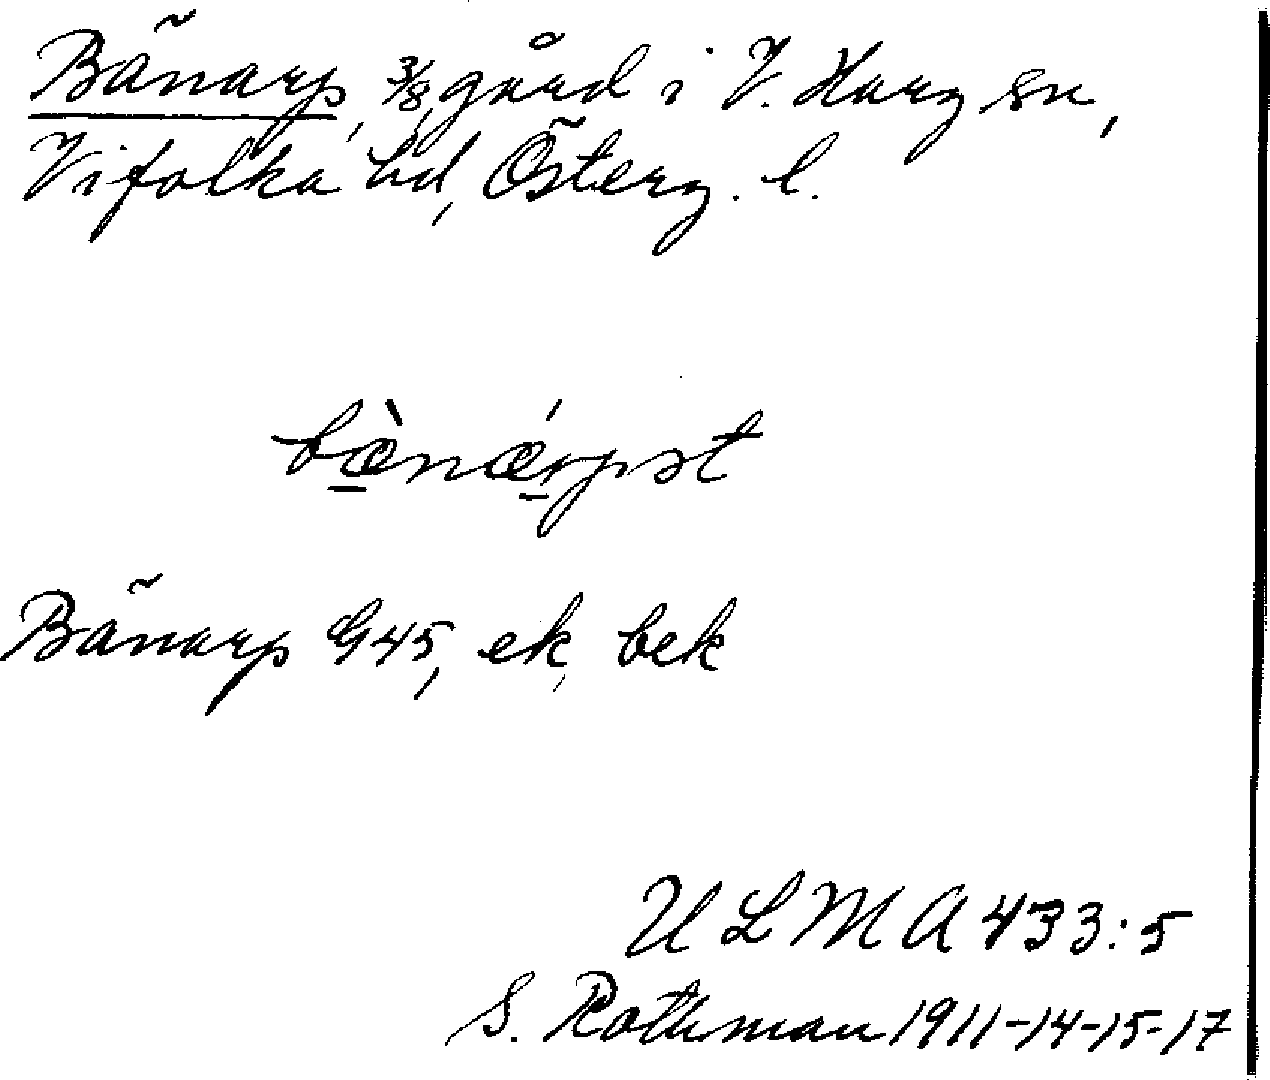 Bänarp, 3/8 gård i V. Harg sn,
Vifolka hd, Österg. l.
bæ̀nǽrpst
Bänarp G45, ek, bek
ULMA 433:5
S. Rothman 1911-14-15-17